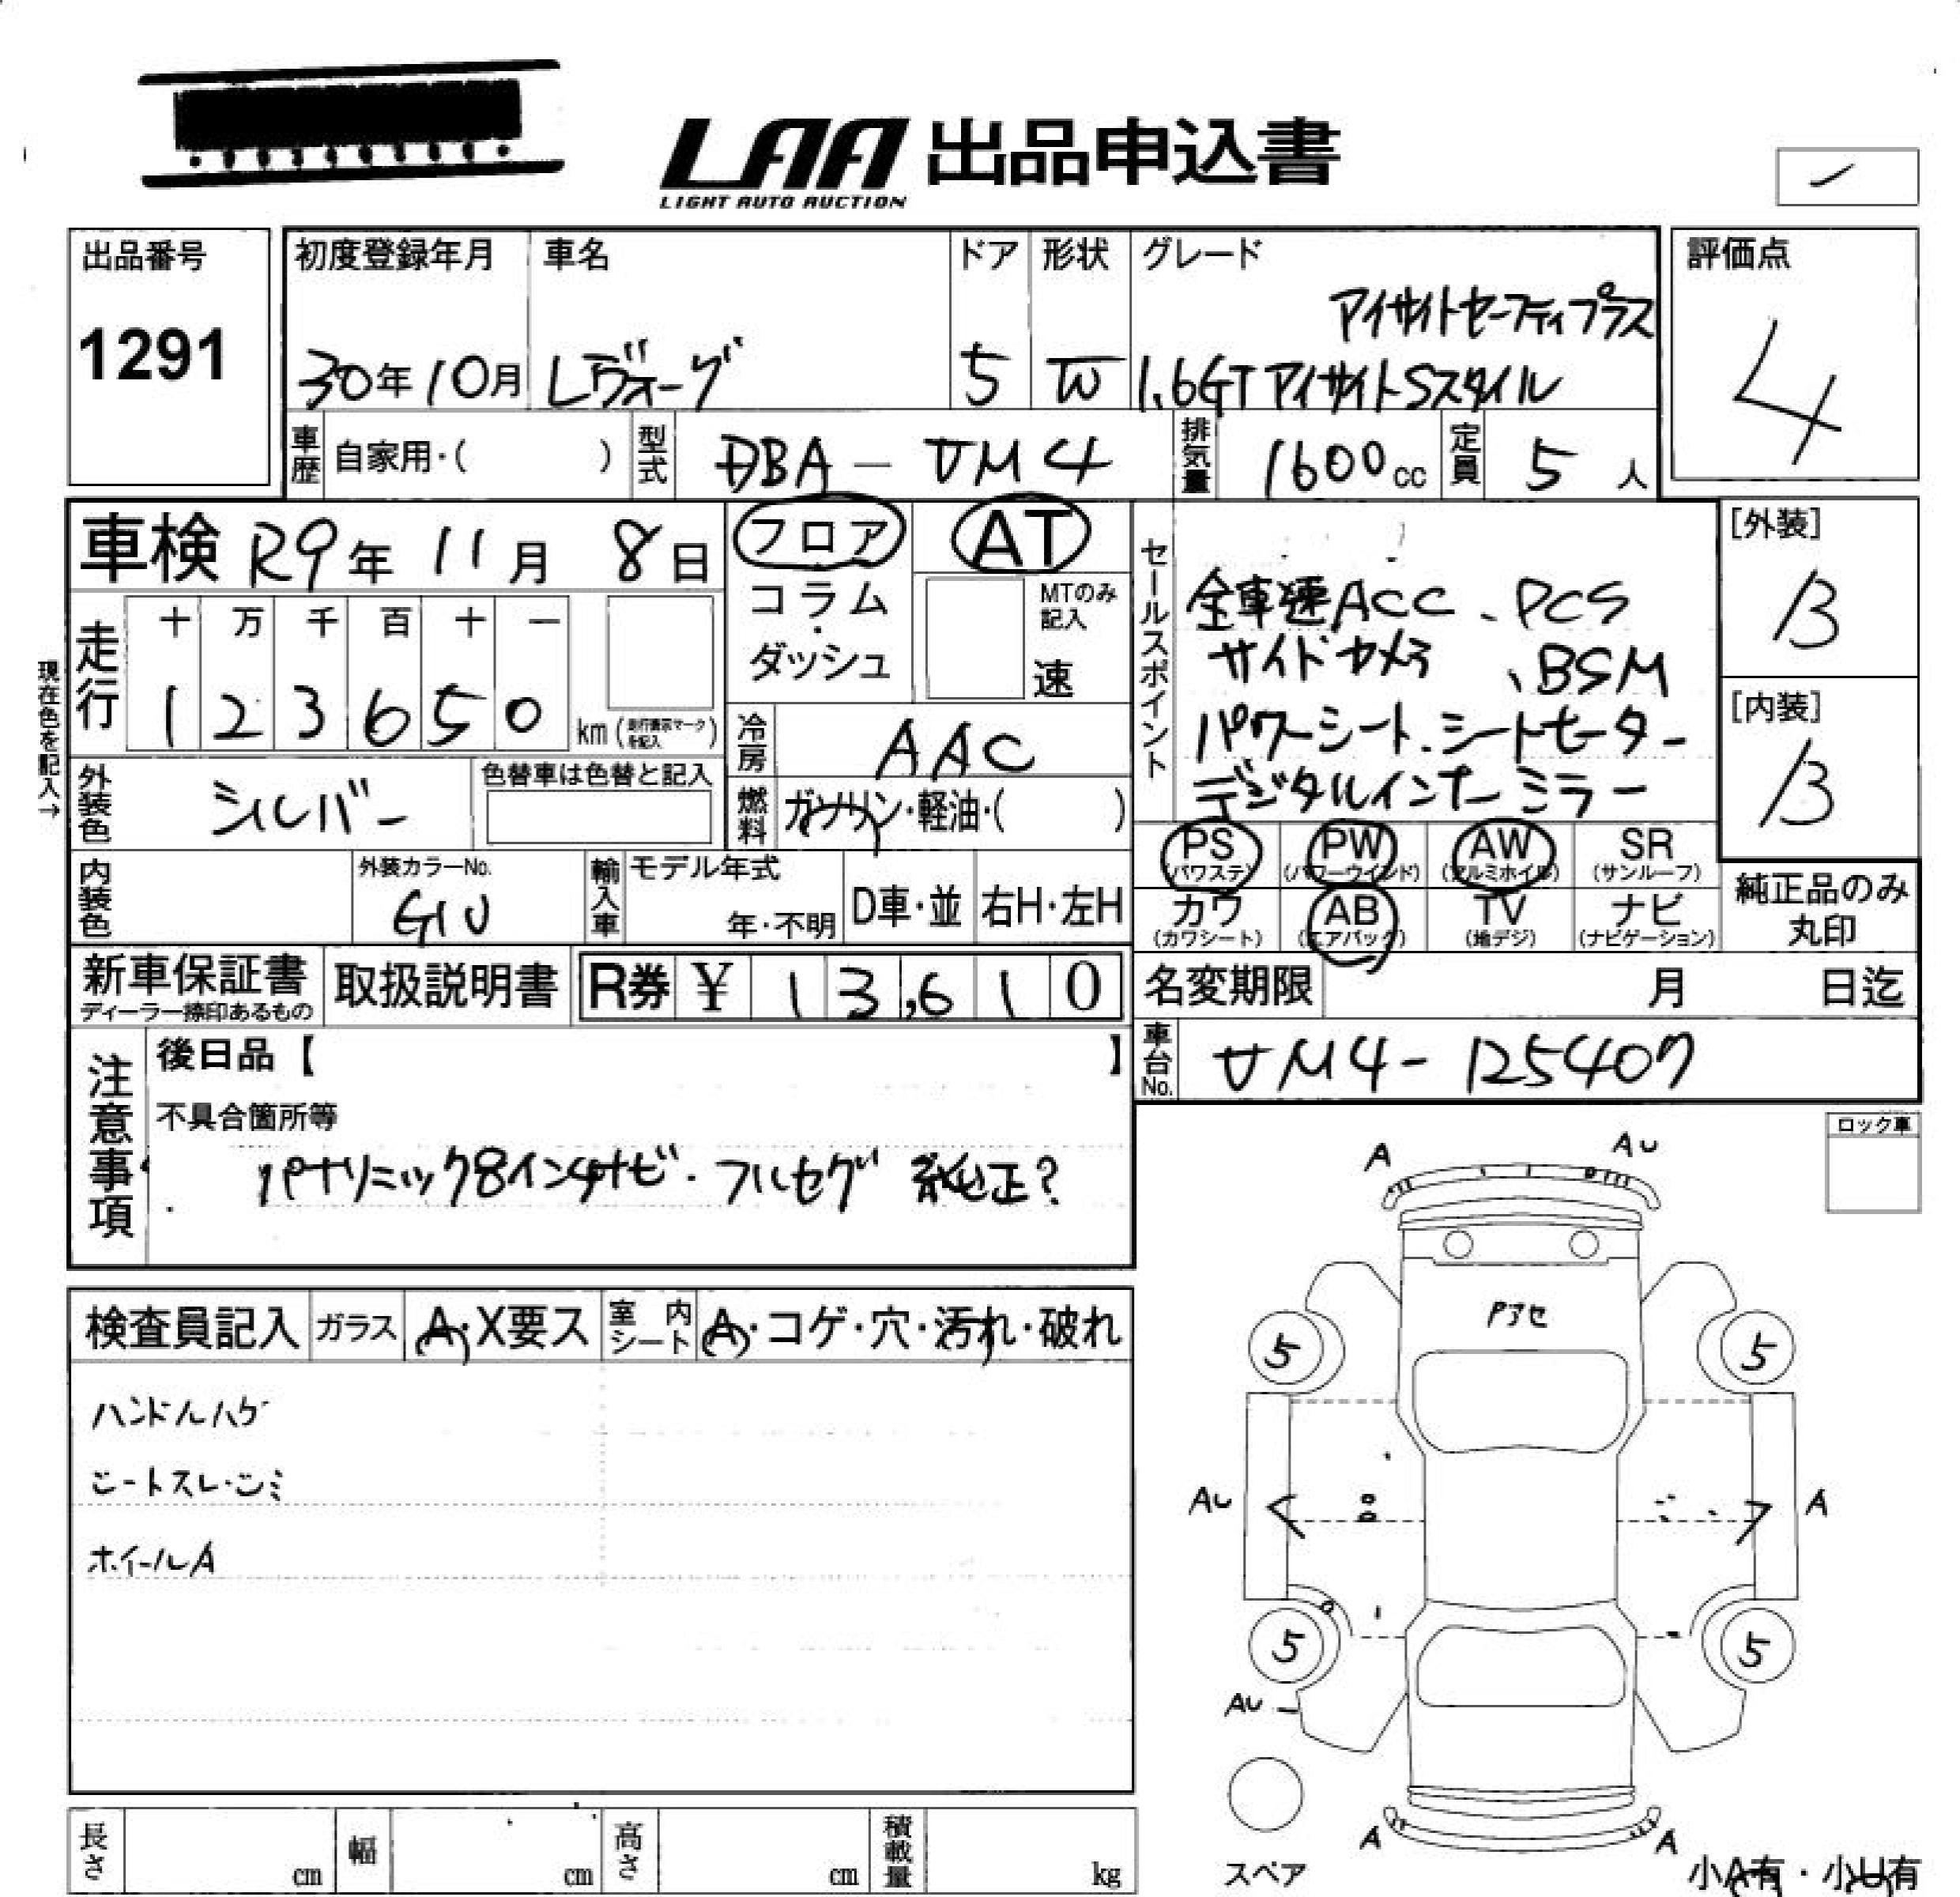 LAA 出品申込書
LIGHT AUTO AUCTION
出品番号
1291
初度登録年月
30年10月
車名
レヴォーグ
ドア
5
形状
W
グレード
アイサイトセーフティプラス
1.6GTアイサイトSスタイル
評価点
4
車歴 自家用・( )
型式 DBA-VM4
排気量 1600cc
定員 5人
車検 R9年11月8日
フロア
コラム
・
ダッシュ
AT
MTのみ記入
速
現在色を記入→
走行 十 万 千 百 十 一
1 2 3 6 5 0 km(走行表示マークを記入)
冷房 AAC
外装色 シルバー
色替車は色替と記入
燃料 ガソリン・軽油・( )
内装色
外装カラーNo.
G1U
輸入車 モデル年式
年・不明
D車・並 右H・左H
セールスポイント
全車速ACC、PCS
サイドカメラ、BSM
パワーシート、シートヒーター
デジタルインナーミラー
[外装]
B
[内装]
B
PS (パワステ)
PW (パワーウインド)
AW (アルミホイル)
SR (サンルーフ)
カワ (カワシート)
AB (エアバック)
TV (地デジ)
ナビ (ナビゲーション)
純正品のみ
丸印
新車保証書
ディーラー捺印あるもの
取扱説明書
R券 ¥ 13,610
名変期限 月 日迄
車台No. VM4-125407
注意事項
後日品【 】
不具合箇所等
パナソニック8インチナビ・フルセグ 純正?
ロック車
検査員記入
ガラス A・X要ス
室内シート A・コゲ・穴・汚れ・破れ
ハンドルハゲ
シートスレ・シミ
ホイールA
A
AU
Pアセ
5
5
AU
A
5
5
AU
A
A
スペア
小A有・小U有
長さ cm
幅 cm
高さ cm
積載量 kg